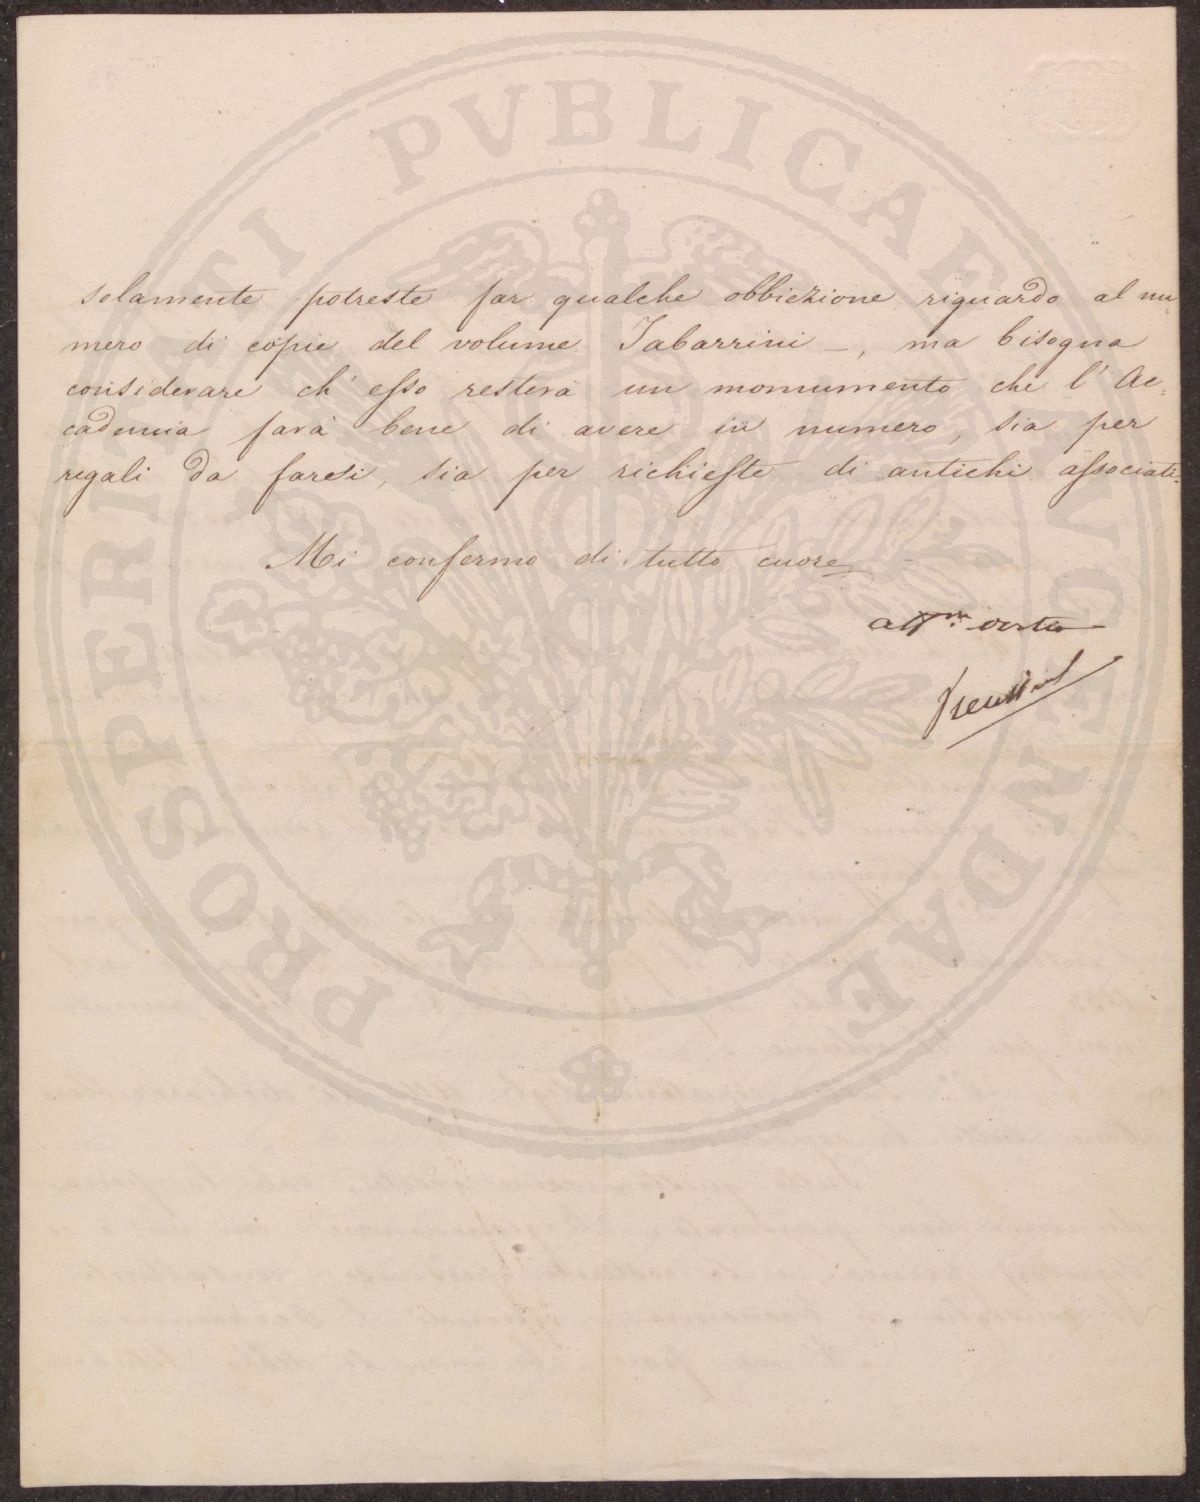 PROSPERITATI PVBLICAE AVGENDAE
solamente potreste far qualche obbiezione riguardo al nu=
mero di copie del volume Tabarrini –, ma bisogna
considerare ch' esso resterà un monumento che l' Ac=
cademia farà bene di avere in numero, sia per
regali da farsi, sia per richieste di antichi associati.
Mi confermo di tutto cuore